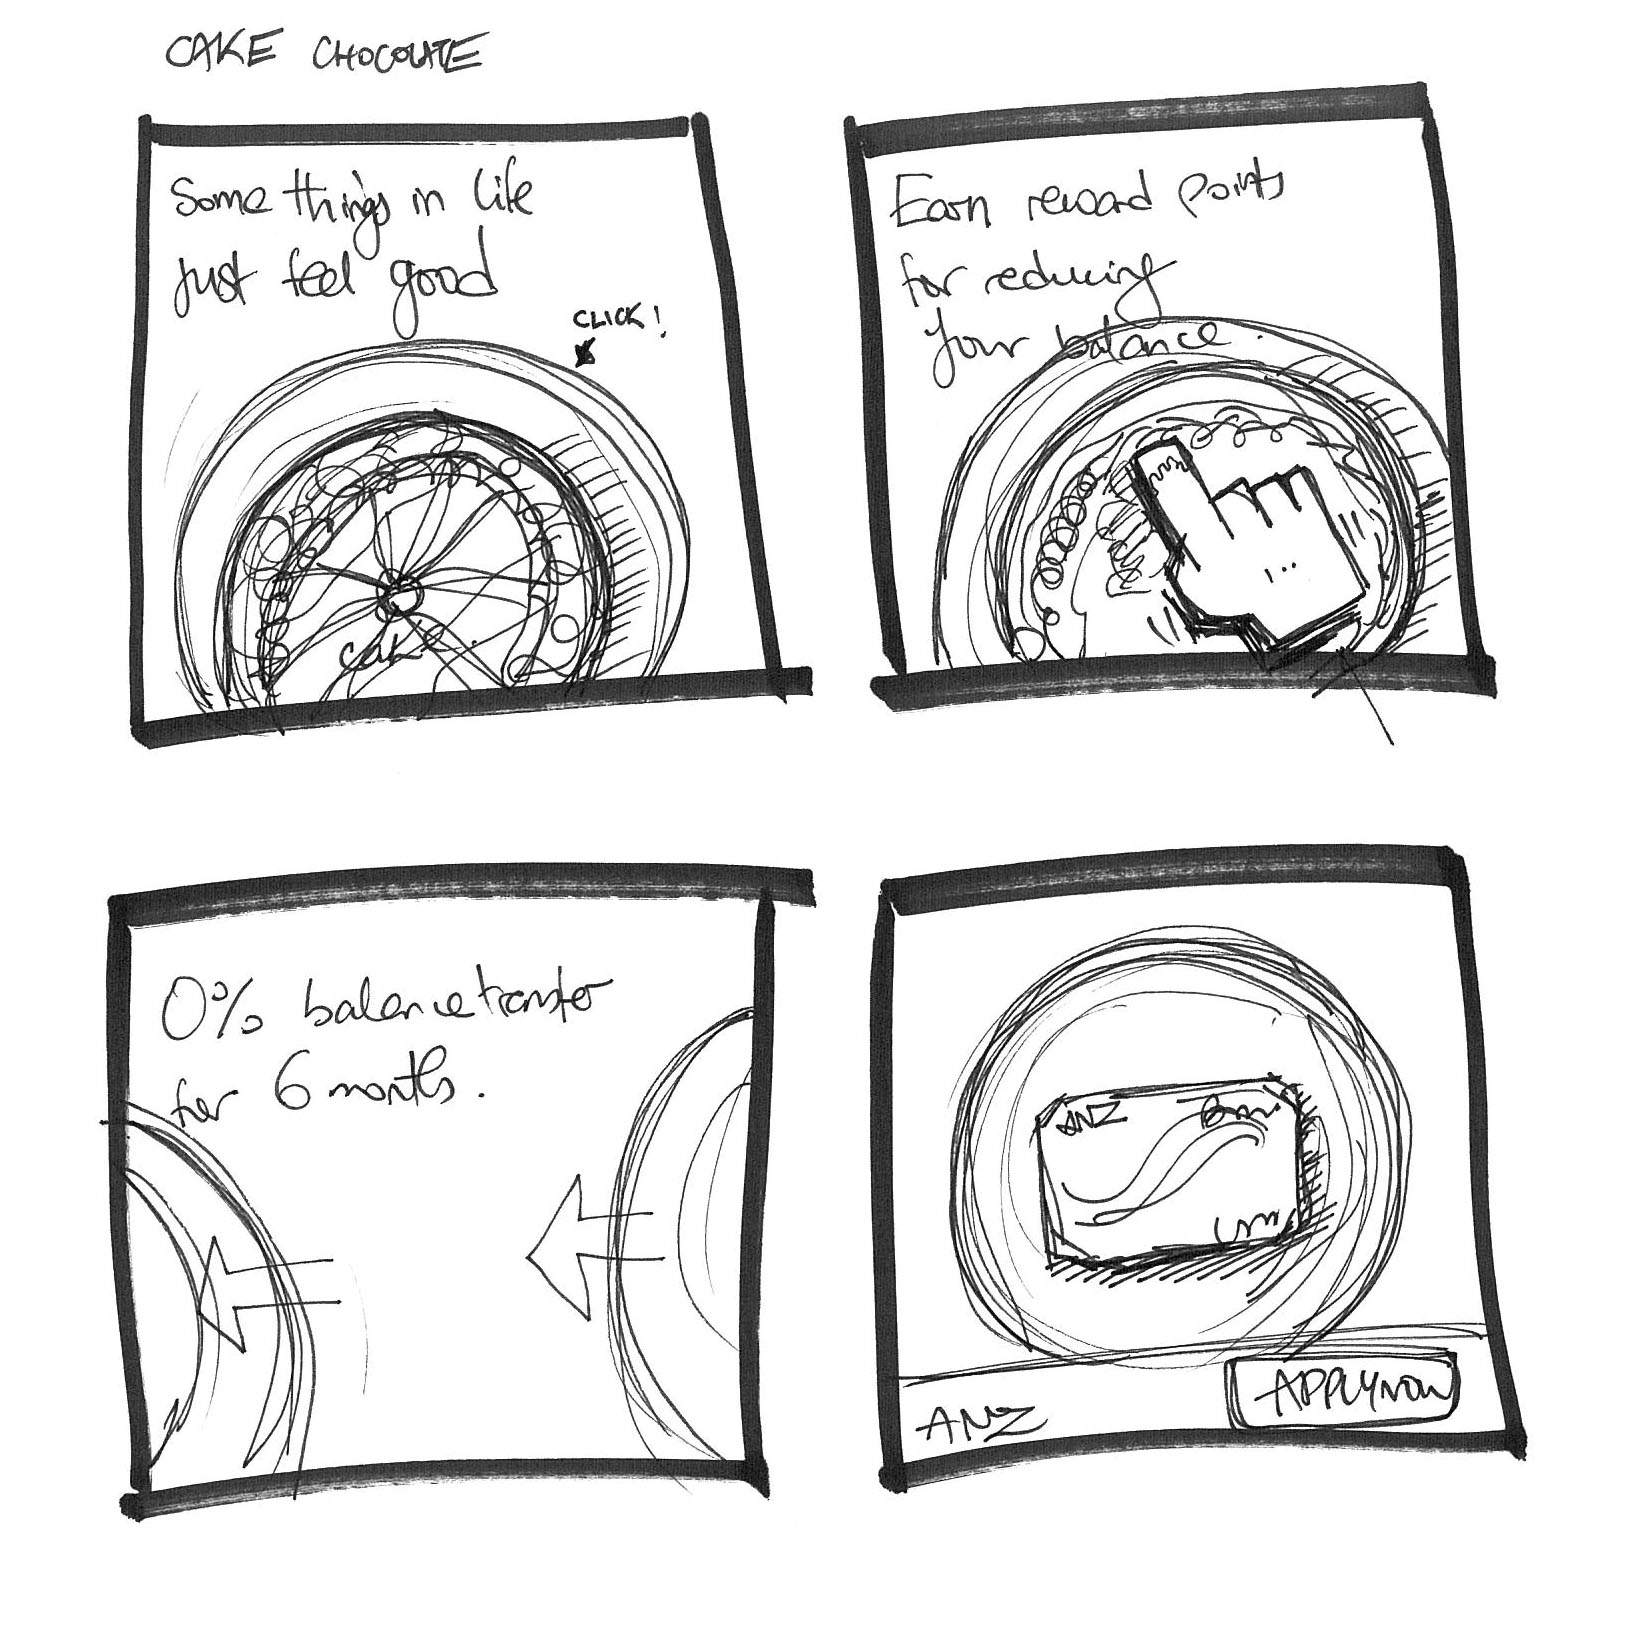 CAKE CHOCOLATE
Some things in life
just feel good
CLICK!
cake
Earn reward points
for reducing
your balance.
0% balance transfer
for 6 months.
ANZ
ANZ
APPLY NOW